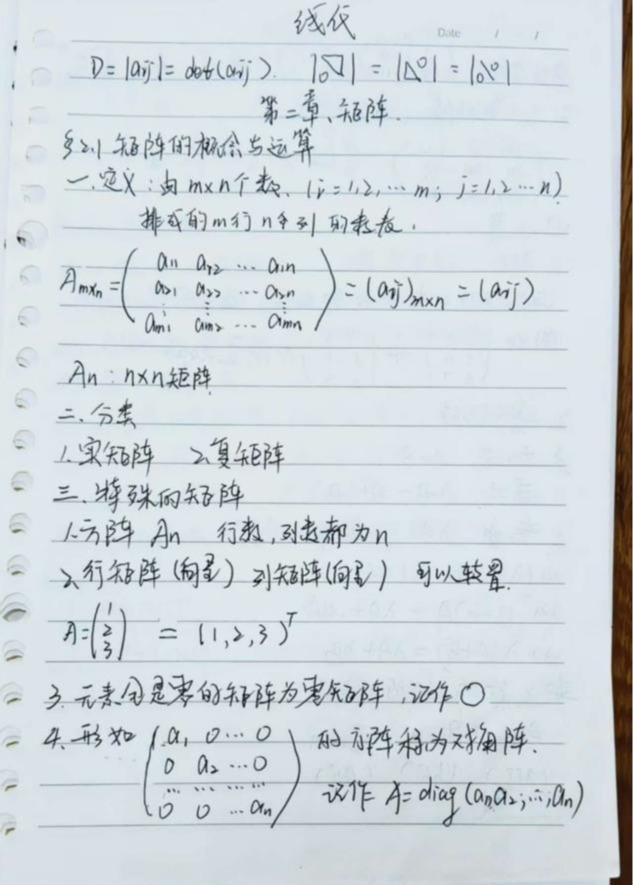 线代
Date / /
D = |aij| = det(aij). |◹| = |◺| = |⟍|
第二章、矩阵.
§2.1 矩阵的概念与运算
一.定义：由m×n个数、(i=1,2,…m; j=1,2…n)
排成的m行n列的数表.
Am×n = ( a11 a12 … a1n
a21 a22 … a2n
⋮ ⋮ ⋮
am1 am2 … amn ) = (aij)m×n = (aij)
An : n×n矩阵
二.分类
1.实矩阵 2.复矩阵
三.特殊的矩阵
1.方阵 An 行数,列数都为n
2.行矩阵(向量) 列矩阵(向量) 可以转置.
A = (1 2 3) = (1,2,3)ᵀ
3.元素全是零的矩阵为零矩阵,记作○
4.形如 ( a1 0 … 0
0 a2 … 0
… … … …
0 0 … an ) 的方阵称为对角阵.
记作 A = diag(a1,a2,…,an)